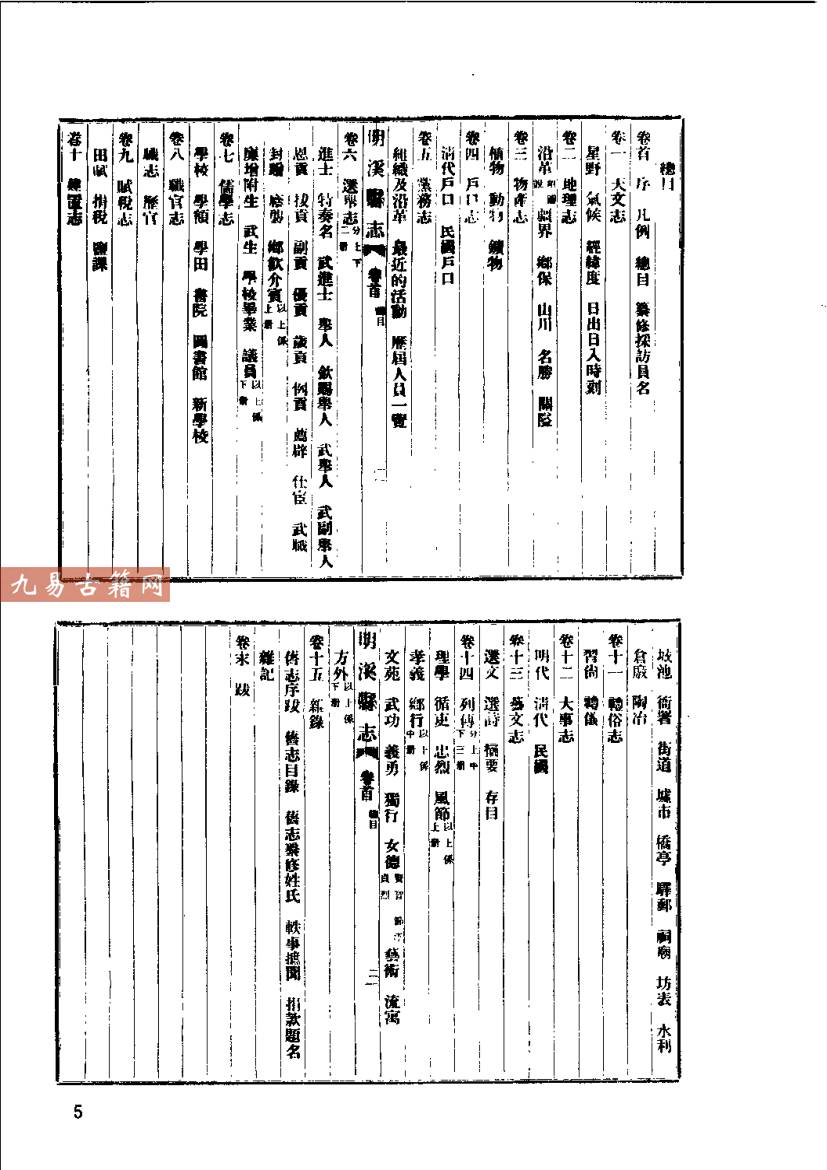 總目
卷首 序 凡例 總目 纂修採訪員名
卷一 天文志
星野 氣候 經緯度 日出日入時刻
卷二 地理志
沿革 疆界 鄉保 山川 名勝 關隘
卷三 物產志
植物 動物 鑛物
卷四 戶口志
清代戶口 民國戶口
卷五 黨務志
組織及沿革 最近的活動 歷屆人員一覽
明溪縣志 卷首 總目 一
卷六 選舉志 分上下二冊
進士 特奏名 武進士 舉人 欽賜舉人 武舉人 武副舉人
恩貢 拔貢 副貢 優貢 歲貢 例貢 薦辟 仕宦 武職
封贈 蔭襲 鄉飲介賓 以上係上冊
廩增附生 武生 學校畢業 議員 以上係下冊
卷七 儒學志
學校 學額 學田 書院 圖書館 新學校
卷八 職官志
職志 歷官
卷九 賦稅志
田賦 捐稅 鹽課
卷十 建置志
城池 衙署 街道 墟市 橋亭 驛郵 祠廟 坊表 水利
倉廒 陶冶
卷十一 禮俗志
習尚 禮儀
卷十二 大事志
明代 清代 民國
卷十三 藝文志
選文 選詩 摘要 存目
卷十四 列傳 分上中下三冊
理學 循吏 忠烈 風節 以上係上冊
孝義 鄉行 以上係中冊
文苑 武功 義勇 獨行 女德 賢智 貞烈 藝術 流寓
明溪縣志 卷首 總目 二
方外 以上係下冊
卷十五 叢錄
舊志序跋 舊志目錄 舊志纂修姓氏 軼事摭聞 捐款題名
雜記
卷末 跋
九易古籍网
5